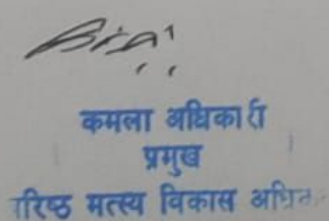 कमला अधिकारी
प्रमुख
रिष्ठ मत्स्य विकास